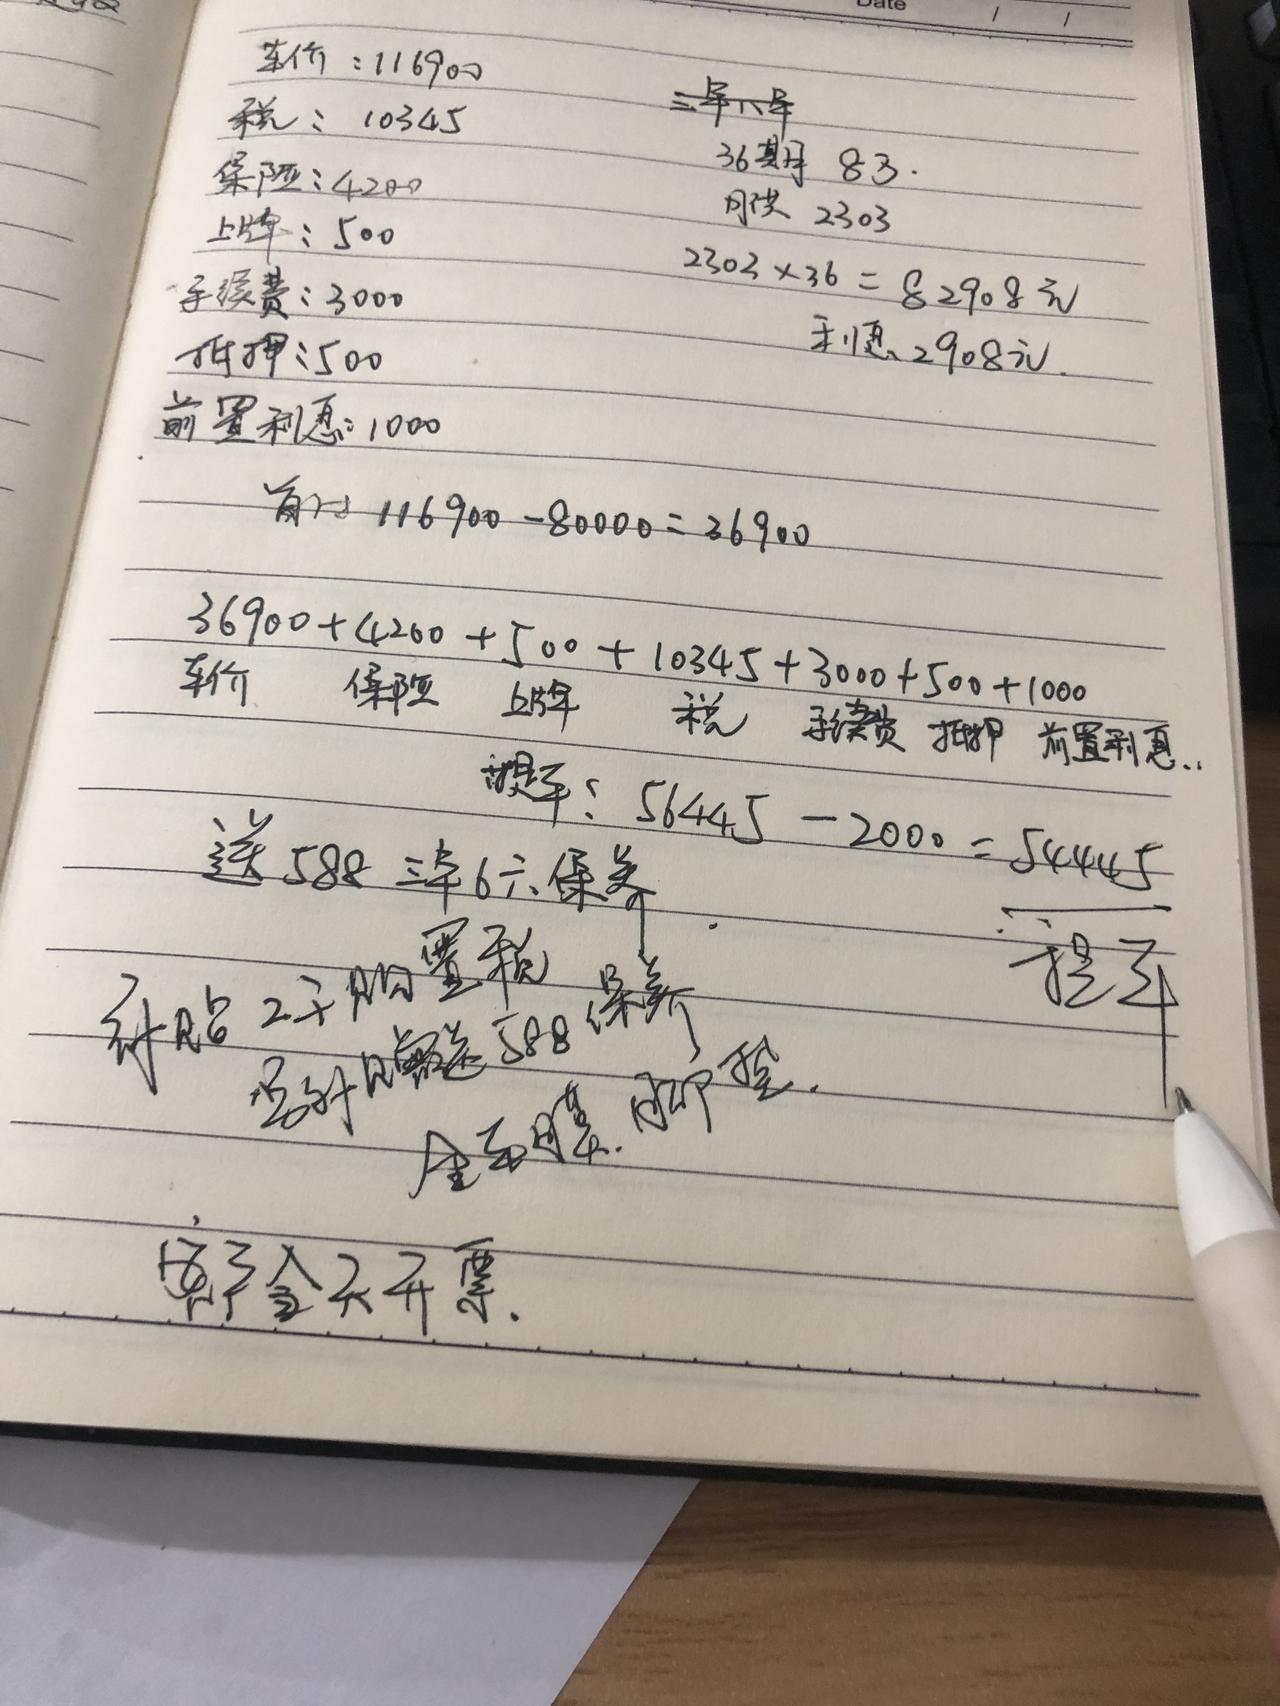 Date / /
车价：116900
税：10345
保险：4200
上牌：500
手续费：3000
抵押：500
前置利息：1000
三年六年
36期 83.
月供 2303
2303×36=82908元
利息2908元.
首付 116900-80000=36900
36900+4200+500+10345+3000+500+1000
车价 保险 上牌 税 手续费 抵押 前置利息..
提车：56445-2000=54445
送588三年6六保养
提车
补贴2千购置税
送588保养
全车膜.脚垫.
今天开票.